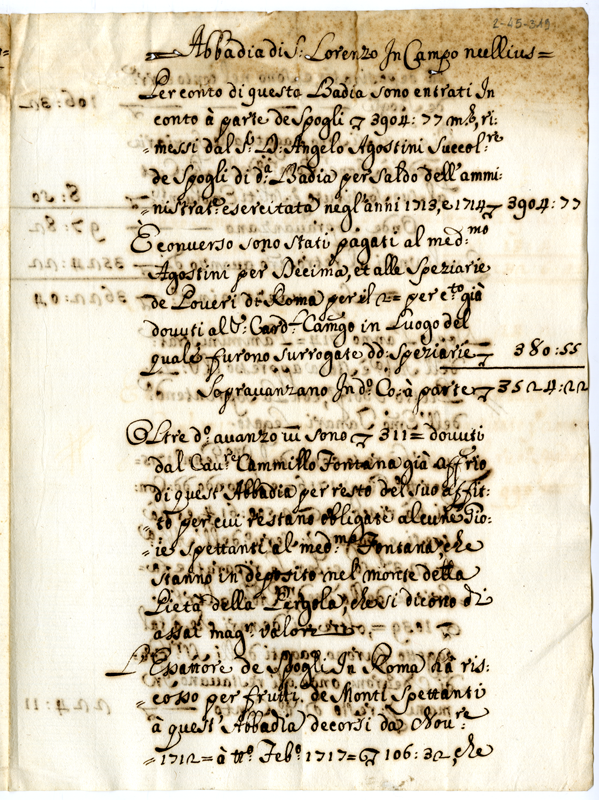 2-45-319
Abbadia di S: Lorenzo In Campo nullius =
Per conto di questa Badia sono entrati In
conto à parte de Spogli ▽ 3904: 77 m.ta, ri-
-messi dal S.r D: Angelo Agostini Succol:re
de Spogli di d.a Badia per saldo dell'ammi-
-nistrat.e esercitata negl'anni 1713, e 1714 ▽ 3904: 77
E converso sono stati pagati al med:mo
Agostini per Decima, et alle Speziarie
de Poveri di Roma per il 2 = per c.to già
dovuti al S: Card.l Cam:go in Luogo del
quale furono surrogate dd: Speziarie ▽ 380: 55
Sopravanzano In d.o Co: à parte ▽ 3524: 22
Oltre d.o avanzo vi sono ▽ 311 = dovuti
dal Cau.re Cammillo Fontana già affit.rio
di quest'Abbadia per resto del suo affit-
-to per cui restano obligate alcune Gio-
-ie spettanti al med:mo Fontana, che
stanno in deposito nel monte della
Pietà della Pergola, che si dicono di
assai mag.r valore
L'Esattore de Spogli In Roma hà ris-
-cosso per frutti de Monti Spettanti
à quest'Abbadia decorsi da Nou:re
1712 = à tt.o Feb.o 1717 = ▽ 106: 32, che